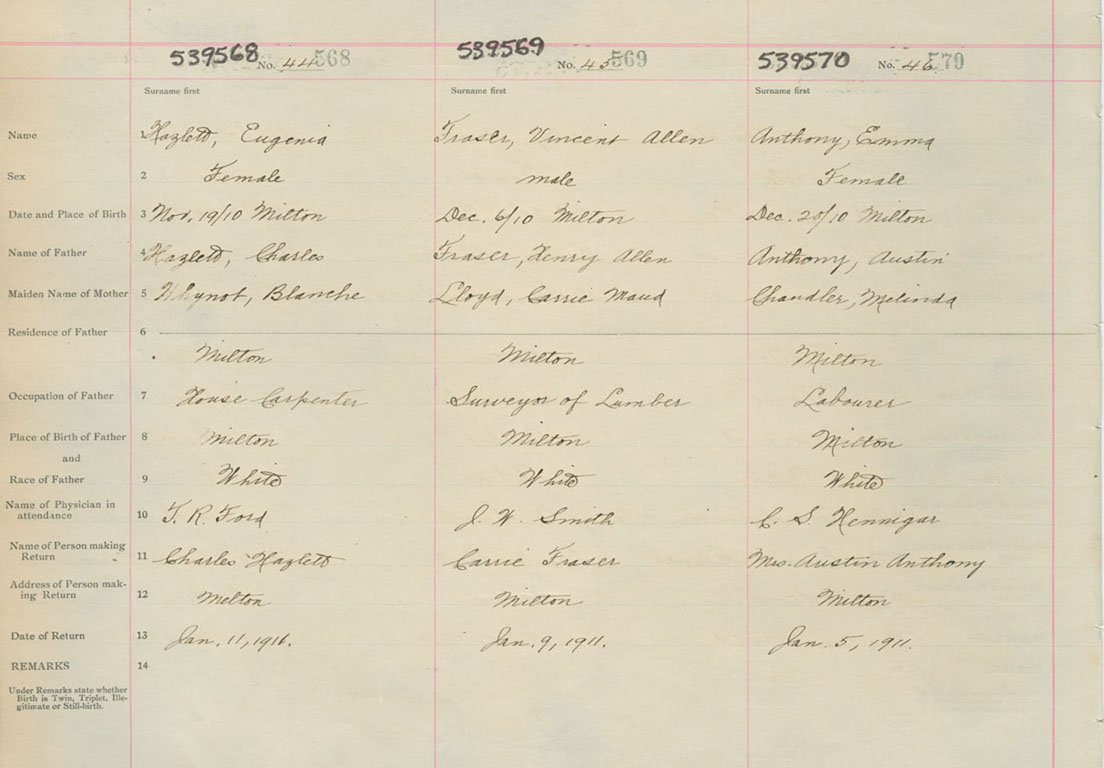 539568 No. 44 568 539569 No. 45 569 539570 No. 46 570
Surname first Surname first Surname first
Name 1 Hazlett, Eugenia Fraser, Vincent Allen Anthony, Emma
Sex 2 Female male Female
Date and Place of Birth 3 Nov. 19/10 Milton Dec. 6/10 Milton Dec. 20/10 Milton
Name of Father 4 Hazlett, Charles Fraser, Henry Allen Anthony, Austin
Maiden Name of Mother 5 Whynot, Blanche Lloyd, Carrie Maud Chandler, Melinda
Residence of Father 6
Milton Milton Milton
Occupation of Father 7 House Carpenter Surveyor of Lumber Labourer
Place of Birth of Father 8 Milton Milton Milton
and
Race of Father 9 White White White
Name of Physician in
attendance 10 T. R. Ford J. W. Smith C. S. Hennigar
Name of Person making
Return 11 Charles Hazlett Carrie Fraser Mrs. Austin Anthony
Address of Person mak-
ing Return 12 Melton Milton Milton
Date of Return 13 Jan. 11, Jan. 9, 1911. Jan. 5, 1911.
REMARKS 14
Under Remarks state whether
Birth is Twin, Triplet, Ille-
gitimate or Still-birth.